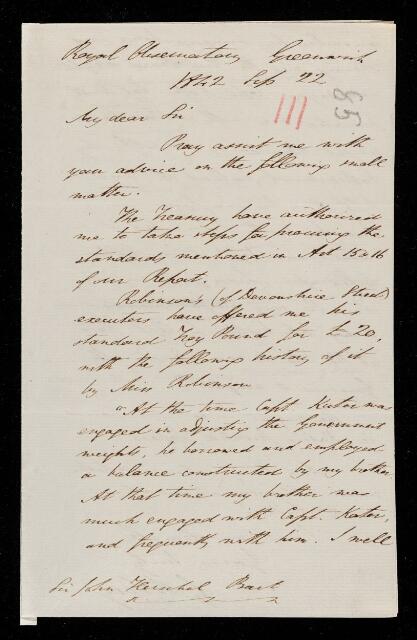 Royal Observatory Greenwich
1842 Sep 22
111
85
My dear Sir
Pray assist me with
your advice on the following small
matter.
The Treasury have authorized
me to take steps for procuring the
standards mentioned in Art 15 & 16
of our Report.
Robinson's (of Devonshire Street)
executors have offered me his
standard Troy Pound for £20,
with the following history of it
by Miss Robinson
"At the time Capt. Kater was
engaged in adjusting the Government
weights, he borrowed and employed
a balance constructed by my brother
At that time my brother was
much engaged with Capt. Kater,
and frequently with him. I well
Sir John Herschel Bart